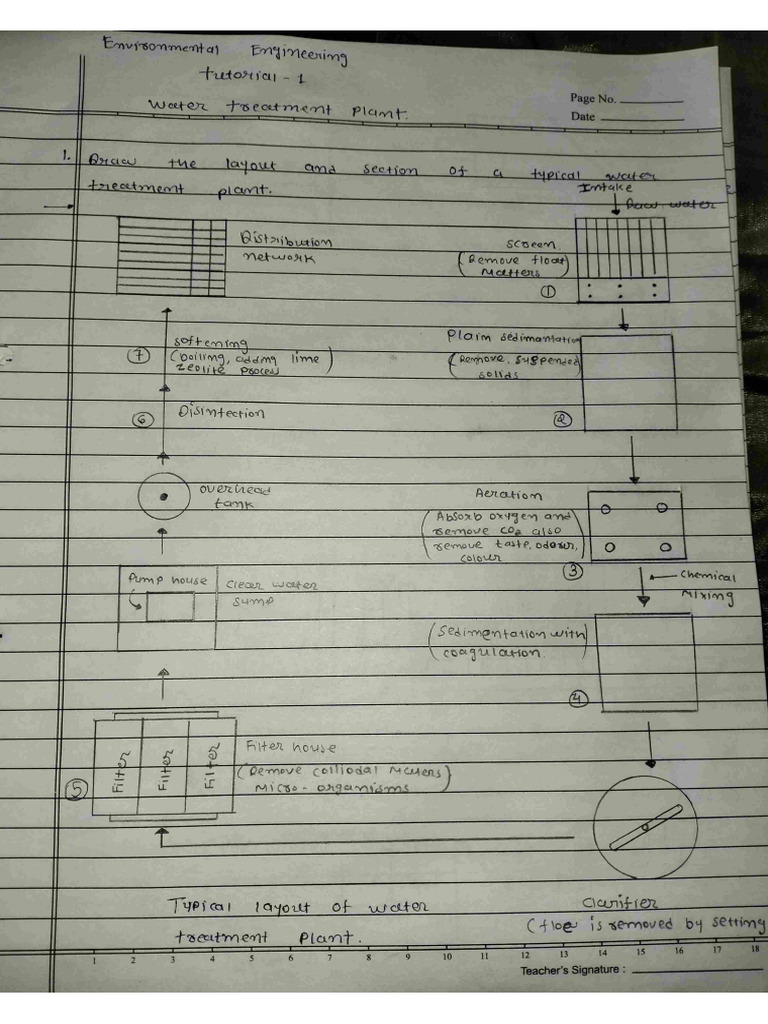 Environmental Engineering
Tutorial - 1
Water treatment plant.
Page No.
Date
1. Draw the layout and section of a typical water
treatment plant.
Intake
Raw water
Distribution
network
Screen
(Remove float
Matters)
1
Softening
(boiling, adding lime
zeolite process)
7
Plain sedimentation
(Remove suspended
solids)
2
6
Disinfection
overhead
tank
Aeration
(Absorb oxygen and
remove CO2 also
remove taste, odour,
colour)
3
Chemical
Mixing
Pump house
Clear water
sump
(Sedimentation with
coagulation)
4
Filter
Filter
Filter
5
Filter house
(Remove colliodal Matters)
Micro-organisms
Typical layout of water
treatment plant.
Clarifier
(floc is removed by setting
1 2 3 4 5 6 7 8 9 10 11 12 13 14 15 16 17 18
Teacher's Signature :